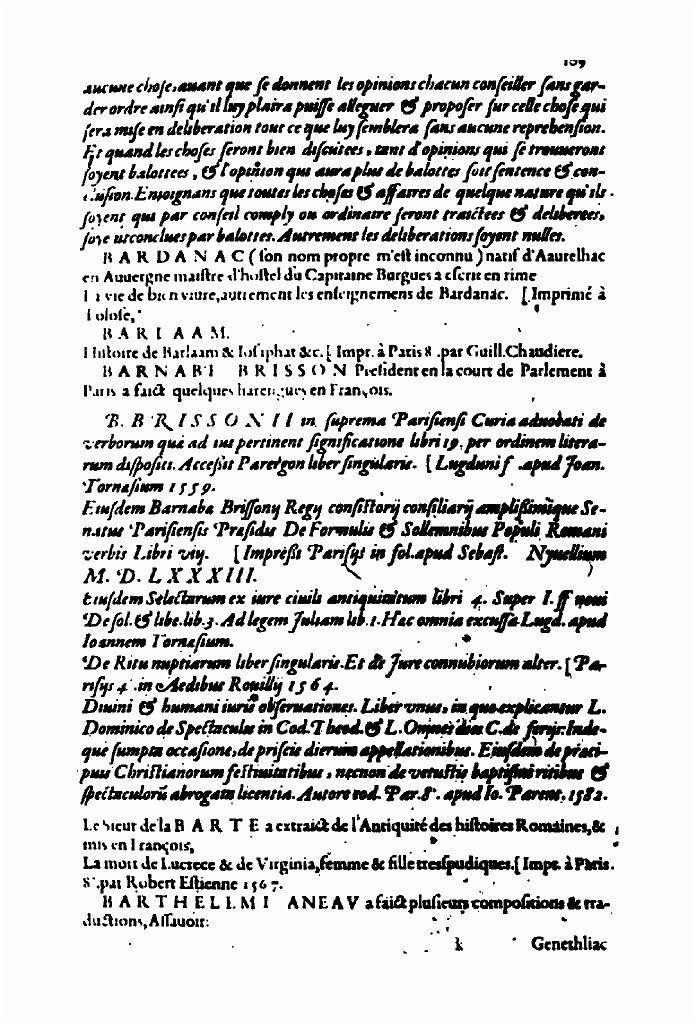 109
aucune chose, auant que se donnent les opinions chacun conseiller sans gar-
der ordre ainsi qu'il luy plaira puisse alleguer & proposer sur celle chose qui
sera mise en deliberation tout ce que luy semblera sans aucune reprehension.
Et quand les choses seront bien discutees, tant d'opinions qui se trouueront
soyent balottees, & l'opinion qui aura plus de balottes soit sentence & con-
clusion. Enioignans que toutes les choses & affaires de quelque nature qu'ils
soyent qui par conseil comply ou ordinaire seront traictees & deliberees,
soyent conclues par balottes. Autrement les deliberations soyent nulles.
BARDANAC (son nom propre m'est inconnu) natif d'Aaurelhac
en Auuergne maistre d'hostel du Capitaine Borgues a escrit en rime
La vie de bien viure, autrement les enseignemens de Bardanac. [Imprimé à
Tolose,
BARLAAM.
Histoire de Barlaam & Iosaphat &c. [Impr. à Paris 8. par Guill. Chaudiere.
BARNABE BRISSON President en la court de Parlement à
Paris a faict quelques harengues en François.
B. BRISSONII in suprema Parisiensi Curia aduocati de
verborum quæ ad ius pertinent significatione libri 19. per ordinem litera-
rum dispositi. Accessit Parergon liber singularis. [Lugduni f. apud Ioan.
Tornæsium 1559.
Eiusdem Barnabæ Brissonij Regij consistorij consiliarij amplissimique Se-
natus Parisiensis Præsidis De Formulis & Sollemnibus Populi Romani
verbis Libri viij. [Impressi Parisijs in fol. apud Sebast. Nyuellium
M. D. LXXXIII.
Eiusdem Selectarum ex iure ciuili antiquitatum libri 4. Super l. ff noui
De sol. & libe. lib. 3. Ad legem Juliam lib. 1. Hæc omnia excussa Lugd. apud
Ioannem Tornæsium.
De Ritu nuptiarum liber singularis. Et de Jure connubiorum alter. [Pa-
risijs 4. in Aedibus Rouillij 1564.
Diuini & humani iuris obseruationes. Liber vnus, in quo explicantur L.
Dominico de Spectaculis in Cod. Theod. & L. Omnes dies C. de ferijs. Inde-
que sumpta occasione, de priscis dierum appellationibus. Eiusdem de præci-
puis Christianorum festiuitatibus, necnon de vetustis baptismi ritibus &
spectaculorũ abrogata licentia. Autore eod. Par. 8. apud Io. Parent. 1582.
Le Sieur de la BARTE a extraict de l'Antiquité des histoires Romaines, &
mis en François,
La mort de Lucrece & de Virginia, femme & fille trespudiques. [Impr. à Paris.
8. par Robert Estienne 1567.
BARTHELEMI ANEAV a faict plusieurs compositions & tra-
ductions, Assauoir:
k Genethliac